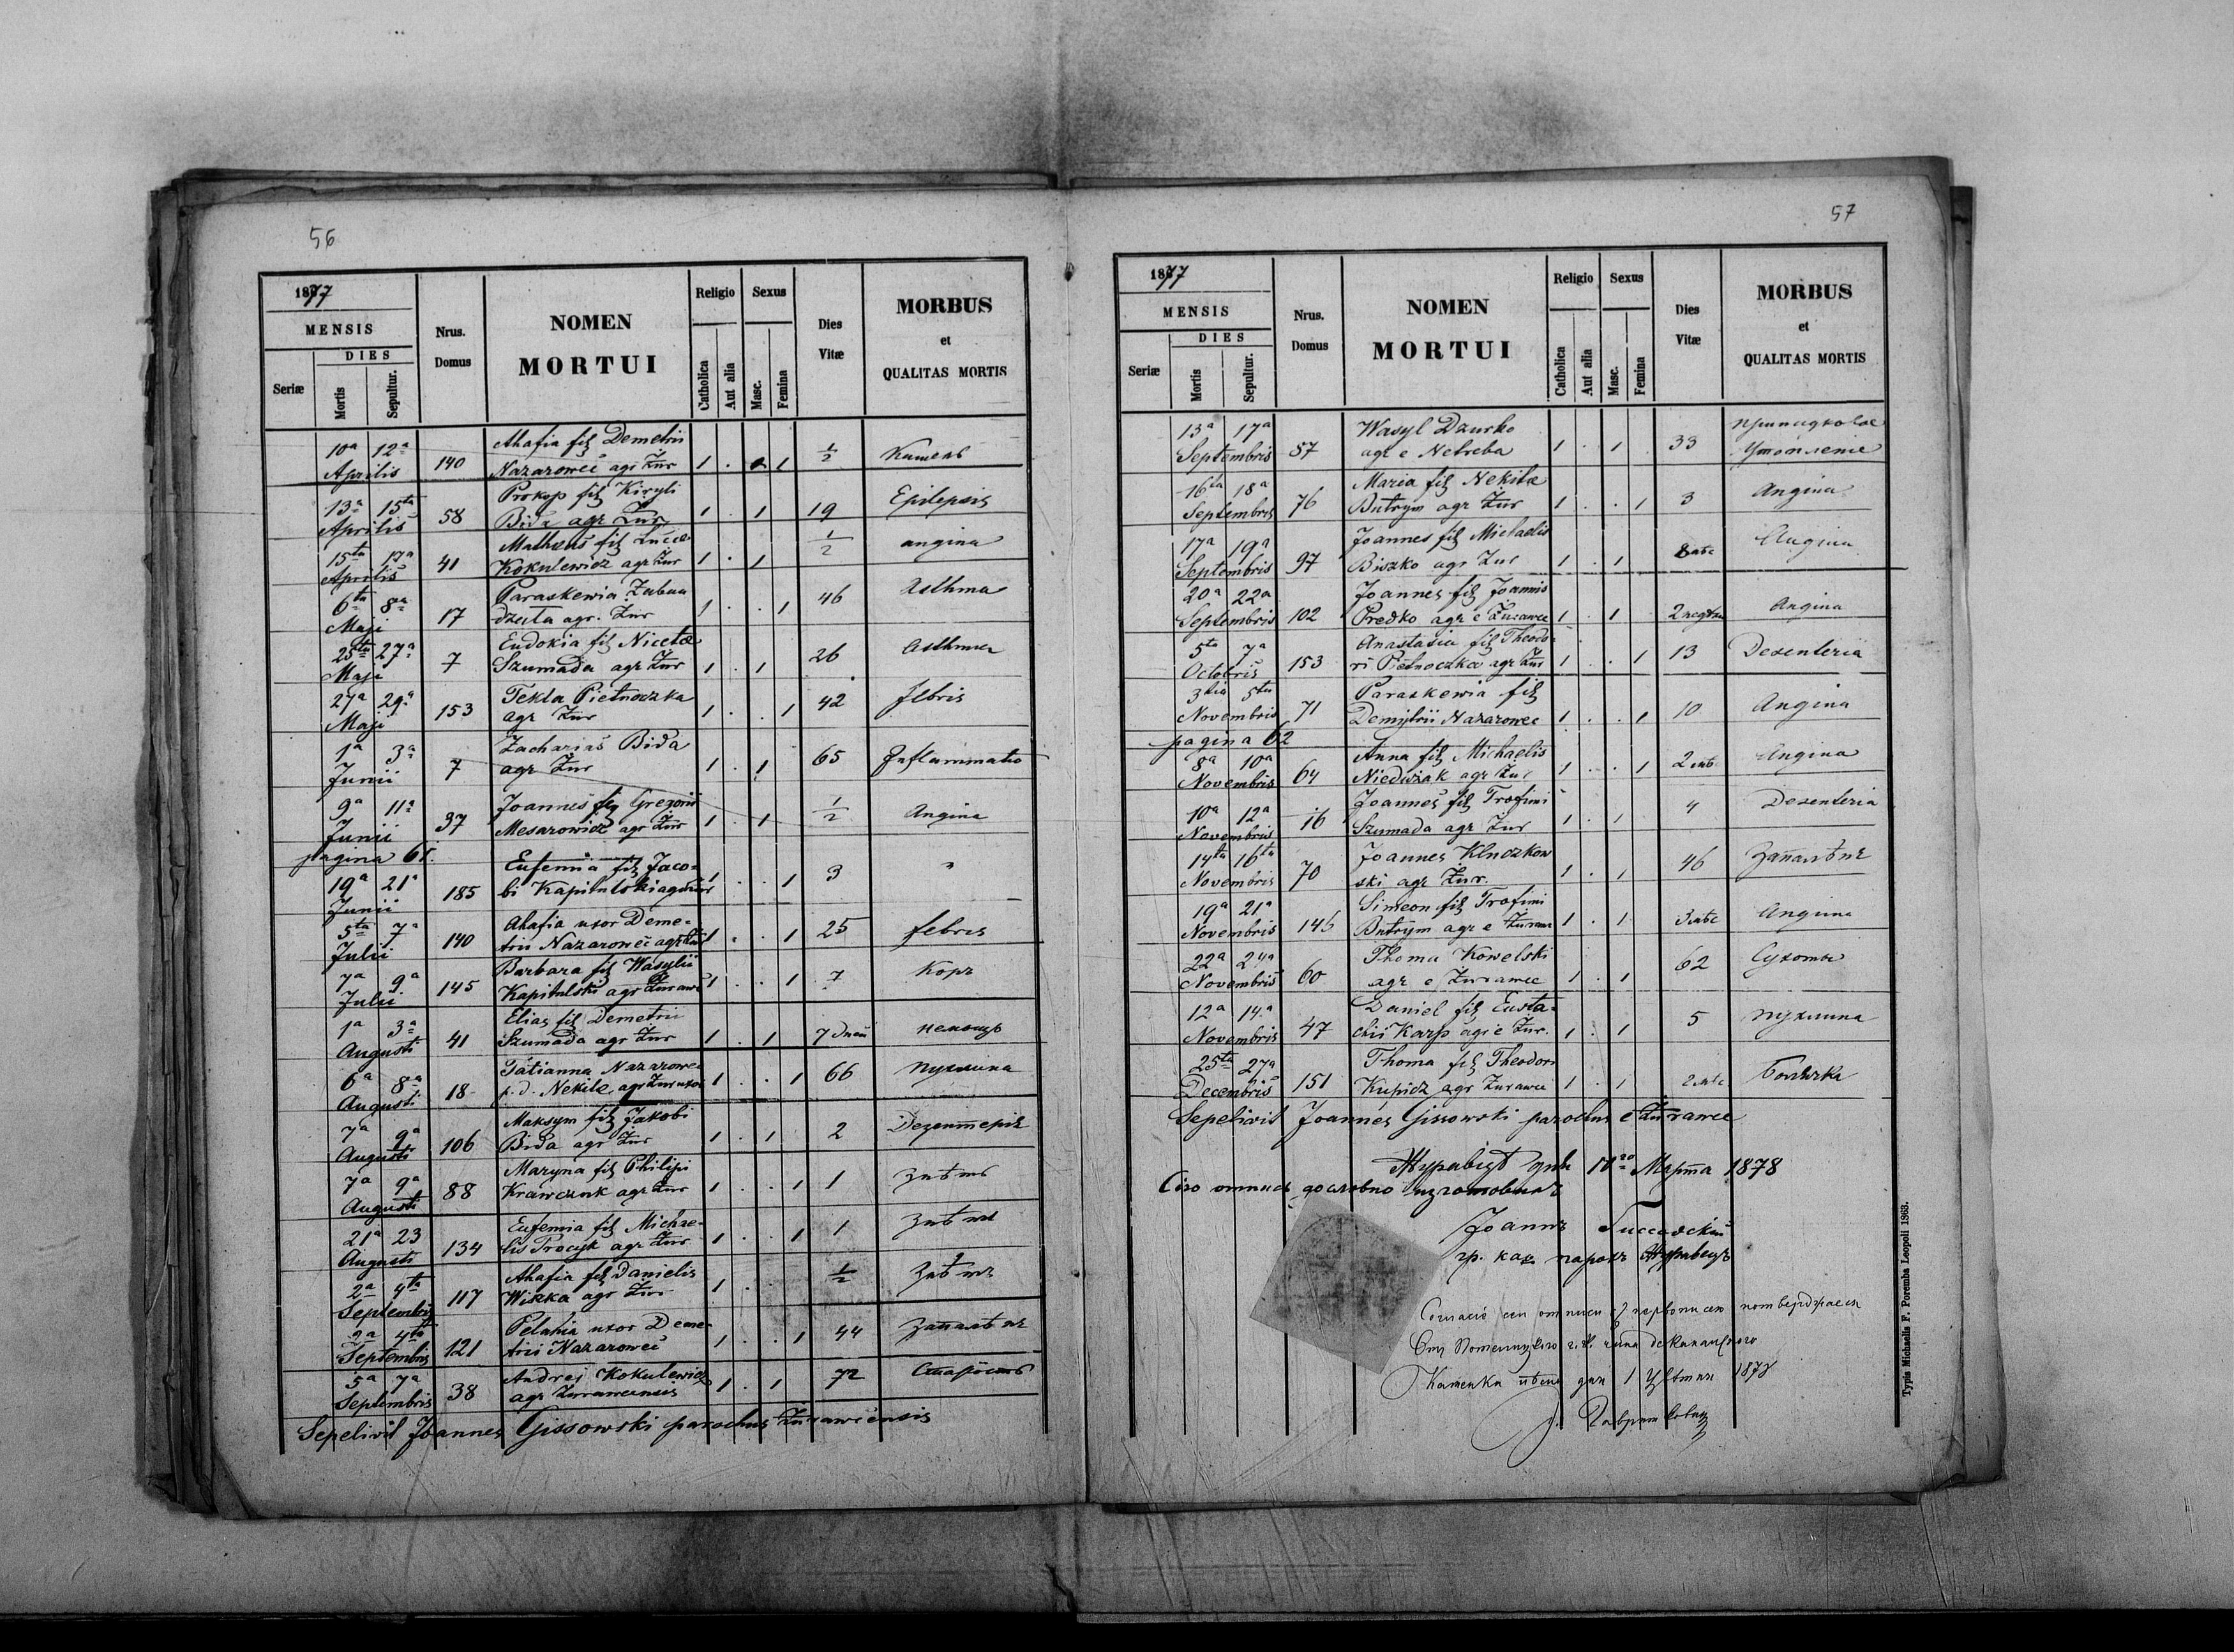 56
1877
MENSIS
DIES
Seriæ
Mortis
Sepultur.
Nrus.
Domus
NOMEN
MORTUI
Religio
Catholica
Aut alia
Sexus
Masc.
Femina
Dies
Vitæ
MORBUS
et
QUALITAS MORTIS
10a 12a Ahafia fil Demetrii
Aprilis 140 Nazarowec agr Żur 1 . 1 1/2 Кашель
13a 15ta Prokop fil Kiryli
Aprilis 58 Bida agr Żur 1 . 1 19 Epilepsis
15ta 17a Matheus fil Lucæ
Aprilis 41 Kokulewicz agr Żur 1 . 1 1/2 angina
6ta 8a Paraskewia
Maji 17 agr. Żur 1 . . 1 46 Asthma
25ta 27a Eudokia fil Nicetæ
Maji 7 Szumada agr Żur 1 . 1 26 Asthma
27a 29a Tekla Pietnoczka
Maji 153 agr Żur 1 . . 1 42 febris
1a 3a Zacharias Bida
Junii 7 agr Żur 1 . 1 65 Inflammatio
9a 11a Joannes fil Gregorii
Junii 37 Mesarowicz agr Żur 1 . 1 1/2 Angina
pagina 61.
19a 21a Eufemia fil Jaco-
Junii 185 bi Kapitulski agr Żur 1 . . 1 3 "
5ta 7a Ahafia uxor Deme-
Julii 140 trii Nazarowec agr Żur 1 . . 1 25 febris
7a 9a Barbara fil Wasylii
Julii 145 Kapitulski agr Żuraw 1 . . 1 7 Коръ
1a 3a Elias fil Demetrii
Augusti 41 Szumada agr Żur 1 . 1 7 дней немощь
6a 8a Tatianna Nazarowec
Augusti 18 p. d. Nekite agr Żur uxor 1 . . 1 66 пухлина
7a 9a Maksym fil Jakobi
Augusti 106 Bida agr Żur 1 . 1 2 Дезентерія
7a 9a Maryna fil Philipi
Augusti 88 Krawczuk agr Żur 1 . . 1 1
21a 23 Eufemia fil Michae-
Augusti 134 lis Procyk agr Żur 1 . . 1 1
2a 4ta Ahafia fil Danielis
Septembris 117 Wiszka agr Żur 1 . 1/2
2a 4ta Pelahia uxor Deme-
Septembris 121 trii Nazarowec 1 . . 1 44
5a 7a Andrej Kokulewicz
Septembris 38 agr Żurawcensis 1 . 1 72 Старость
Sepelivit Joannes Gissowski parochus Żurawcensis
57
1877
MENSIS
DIES
Seriæ
Mortis
Sepultur.
Nrus.
Domus
NOMEN
MORTUI
Religio
Catholica
Aut alia
Sexus
Masc.
Femina
Dies
Vitæ
MORBUS
et
QUALITAS MORTIS
13a 17a Wasyl Dzurko припадковое
Septembris 57 agr e Netreba 1 . 1 33 утопленіе
16ta 18a Maria fil Nekitæ
Septembris 76 Butrym agr Żur 1 . . 1 3 Angina
17a 19a Joannes fil Michaelis
Septembris 97 Biszko agr Żur 1 . 1 Angina
20a 22a Joannes fil Joannis
Septembris 102 Predko agr e Żurawce 1 . 1 2 Angina
5ta 7a Anastasia fil Theodo-
Octobris 153 ri Pietnoczka agr Żur 1 . . 1 13 Desenteria
3tia 5ta Paraskewia fil
Novembris 71 Demytrii Nazarowec 1 . . 1 10 Angina
pagina 62
8a 10a Anna fil Michaelis
Novembris 64 Niedwiak agr Żur 1 . . 1 2 Angina
10a 12a Joannes fil Trofimi
Novembris 16 Szumada agr Żur 1 . 1 4 Desenteria
14ta 16ta Joannes Kluczkow
Novembris 70 ski agr Żur. 1 . 1 46
19a 21a Simeon fil Trofimi
Novembris 146 Butrym agr e Żuraw 1 . 1 3 Angina
22a 24a Thoma Kowelski
Novembris 60 agr e Żurawce 1 . 1 62 Сухоты
12a 14a Daniel fil Eusta-
Novembris 47 chii Karp agr e Żur. 1 . 1 5 пухлина
25ta 27a Thoma fil Theodori
Decembris 151 Kupicz agr Żurawce 1 . 1 2
Sepelivit Joannes Gissowski parochus e Żurawce
Журавцѣ дня Марта 1878
Сію дословно
Іоаннъ Гиссовскій
гр. кат. парохъ Журавецъ
Согласіе сеи отписи съ первописею потверджается
Отъ г. к. деканального
Каменка дня 1 Цвѣтня 1878
Typis Michaelis F. Poremba Leopoli 1863.